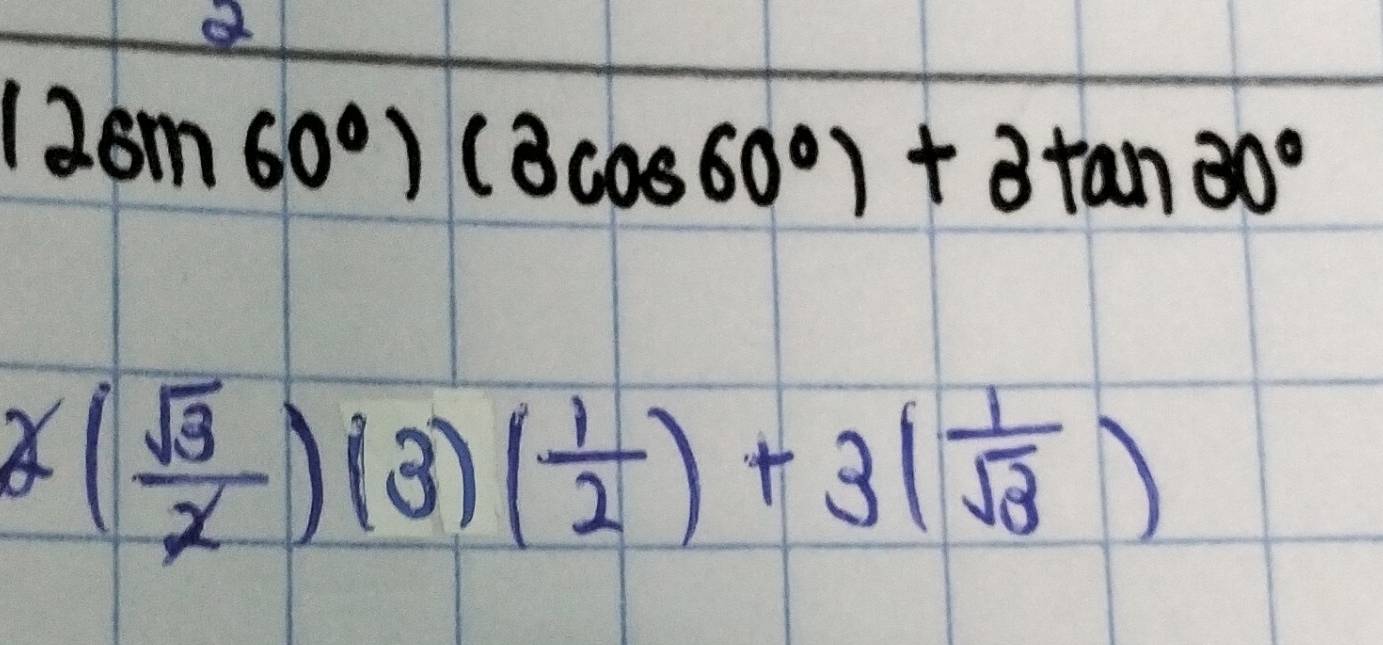 2
(2sin 60°) (3cos 60°) + 3 tan 30°
2(√3/2)(3)(1/2) + 3(1/√3)